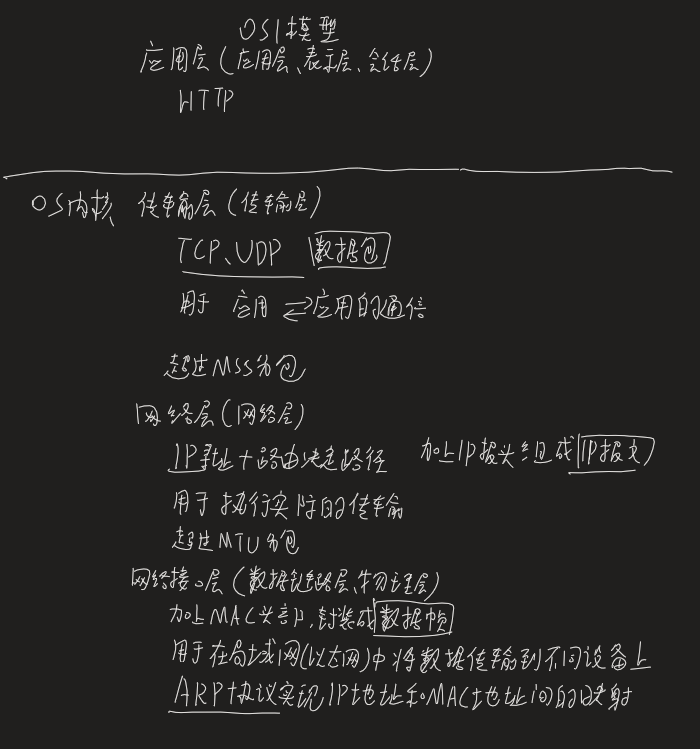 OSI模型
应用层(应用层、表示层、会话层)
HTTP
OS内核 传输层(传输层)
TCP、UDP 数据包
用于 应用⇄应用的通信
超过MSS分包
网络层(网络层)
IP寻址+路由决定路径 加上IP报头组成IP报文
用于执行实际的传输
超过MTU分包
网络接口层(数据链路层、物理层)
加上MAC头部,封装成数据帧
用于在局域网(以太网)中将数据传输到不同设备上
ARP协议实现IP地址和MAC地址间的映射